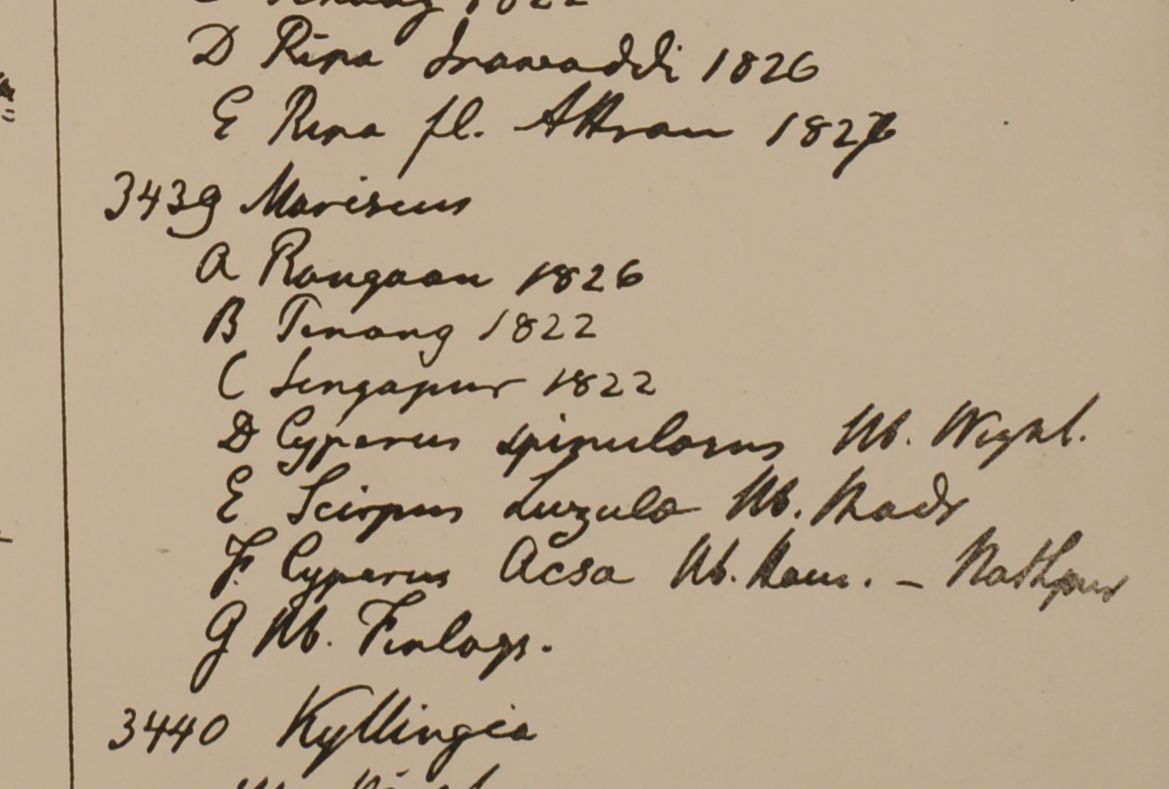 Penang 1822
D Ripa Irawaddi 1826
E Ripa fl. Attran 1827
3439 Mariscus
A Rangaon 1826
B Penang 1822
C Singapur 1822
D Cyperus spinulosus Hb. Wight.
E Scirpus Luzula Hb. Madr
F. Cyperus Acsa Hb. Ham. – Nathpur
G Hb. Finlays.
3440 Kyllingia